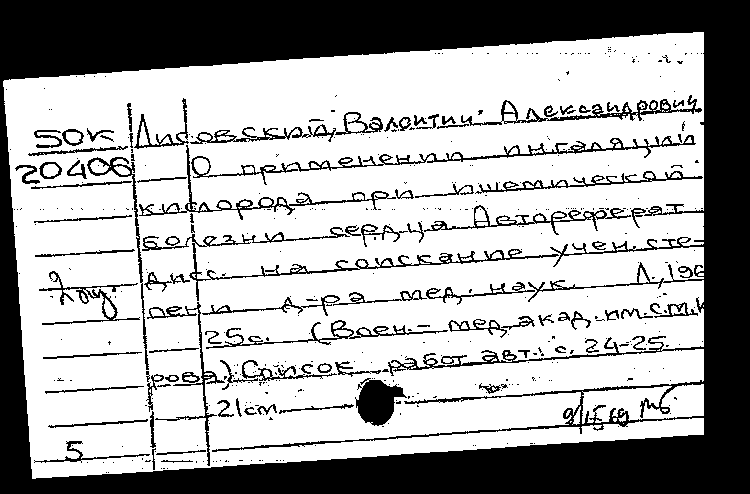 50К Лисовский, Валентин Александрович
20406 О применении ингаляций
кислорода при ишемической
болезни сердца. Автореферат
дисс. на соискание учен. сте-
пени д-ра мед. наук. Л., 196
25с. (Воен.- мед. акад. им. С.М. К
рова). Список работ авт.: с. 24-25
21cm
5